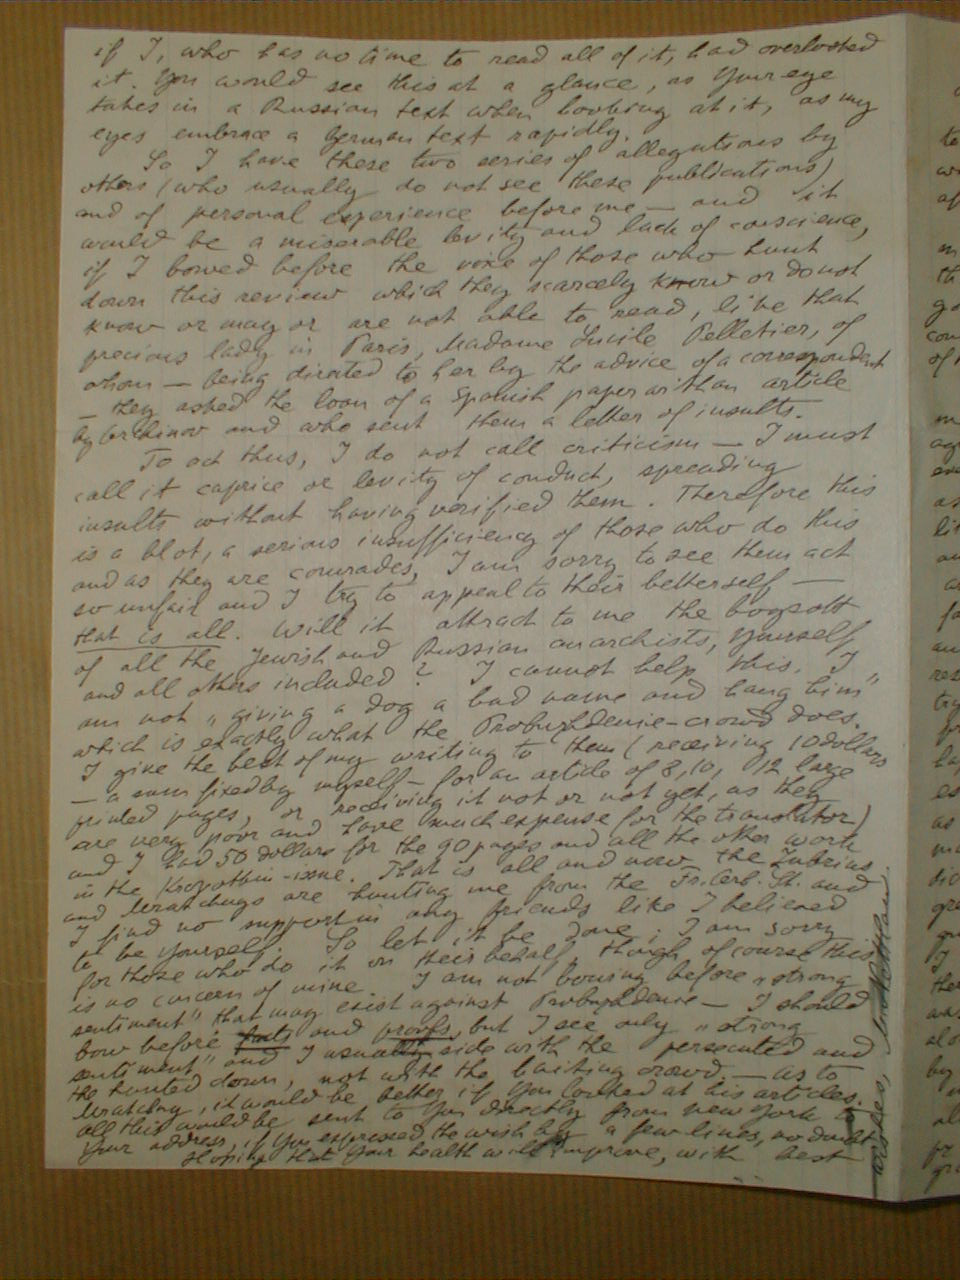 if I, who has no time to read all of it, had overlooked
it. You would see this at a glance, as your eye
takes in a Russian text when looking at it, as my
eyes embrace a German text rapidly.
So I have these two series of allegations by
others (who usually do not see these publications)
and of personal experience before me — and it
would be a miserable levity and lack of conscience,
if I bowed before the voice of those who hunt
down this review which they scarcely know or do not
know or may or are not able to read, like that
precious lady in Paris, Madame Lucile Pelletier, of
whom — being directed to her by the advice of a correspondent
— they asked the loan of a Spanish paper with an article
by and who sent them a letter of insults.
To act thus, I do not call criticism — I must
call it caprice or levity of conduct, spreading
insults without having verified them. Therefore this
is a blot, a serious insufficiency of those who do this
and as they are comrades, I am sorry to see them act
so unfair and I try to appeal to their better self —
that is all. Will it attract to me the boycott
of all the Jewish and Russian anarchists, yourself
and all others included? I cannot help this. I
am not „giving a dog a bad name and hang him"
which is exactly what the Probuzhdenie-crowd does.
I give the best of my writing to them (receiving 10 dollars
— a sum fixed by myself — for an article of 8, 10, 12 large
printed pages, or receiving it not or not yet, as they
are very poor and have much expense for the translator)
and I had 50 dollars for the 90 pages and all the other work
in the Kropotkin-issue. That is all and now the
and Mratchnys are hunting me from the Fr. Arb. St. and
I find no support in any friends like I believed
to be yourself. So let it be done; I am sorry
for those who do it on their behalf, though of course this
is no concern of mine. I am not bowing before „strong
sentiment" that may exist against Probuzhdenie — I should
bow before facts and proofs, but I see only „strong
sentiment" and I usually side with the persecuted and
the hunted down, not with the baiting crowd. — as to
Mratchny, it would be better if you looked at his articles.
all this would be sent to you directly from New York to
your address, if you expressed the wish by a few lines, no doubt
Hoping that your health will improve, with best
wishes, M. Nettlau.